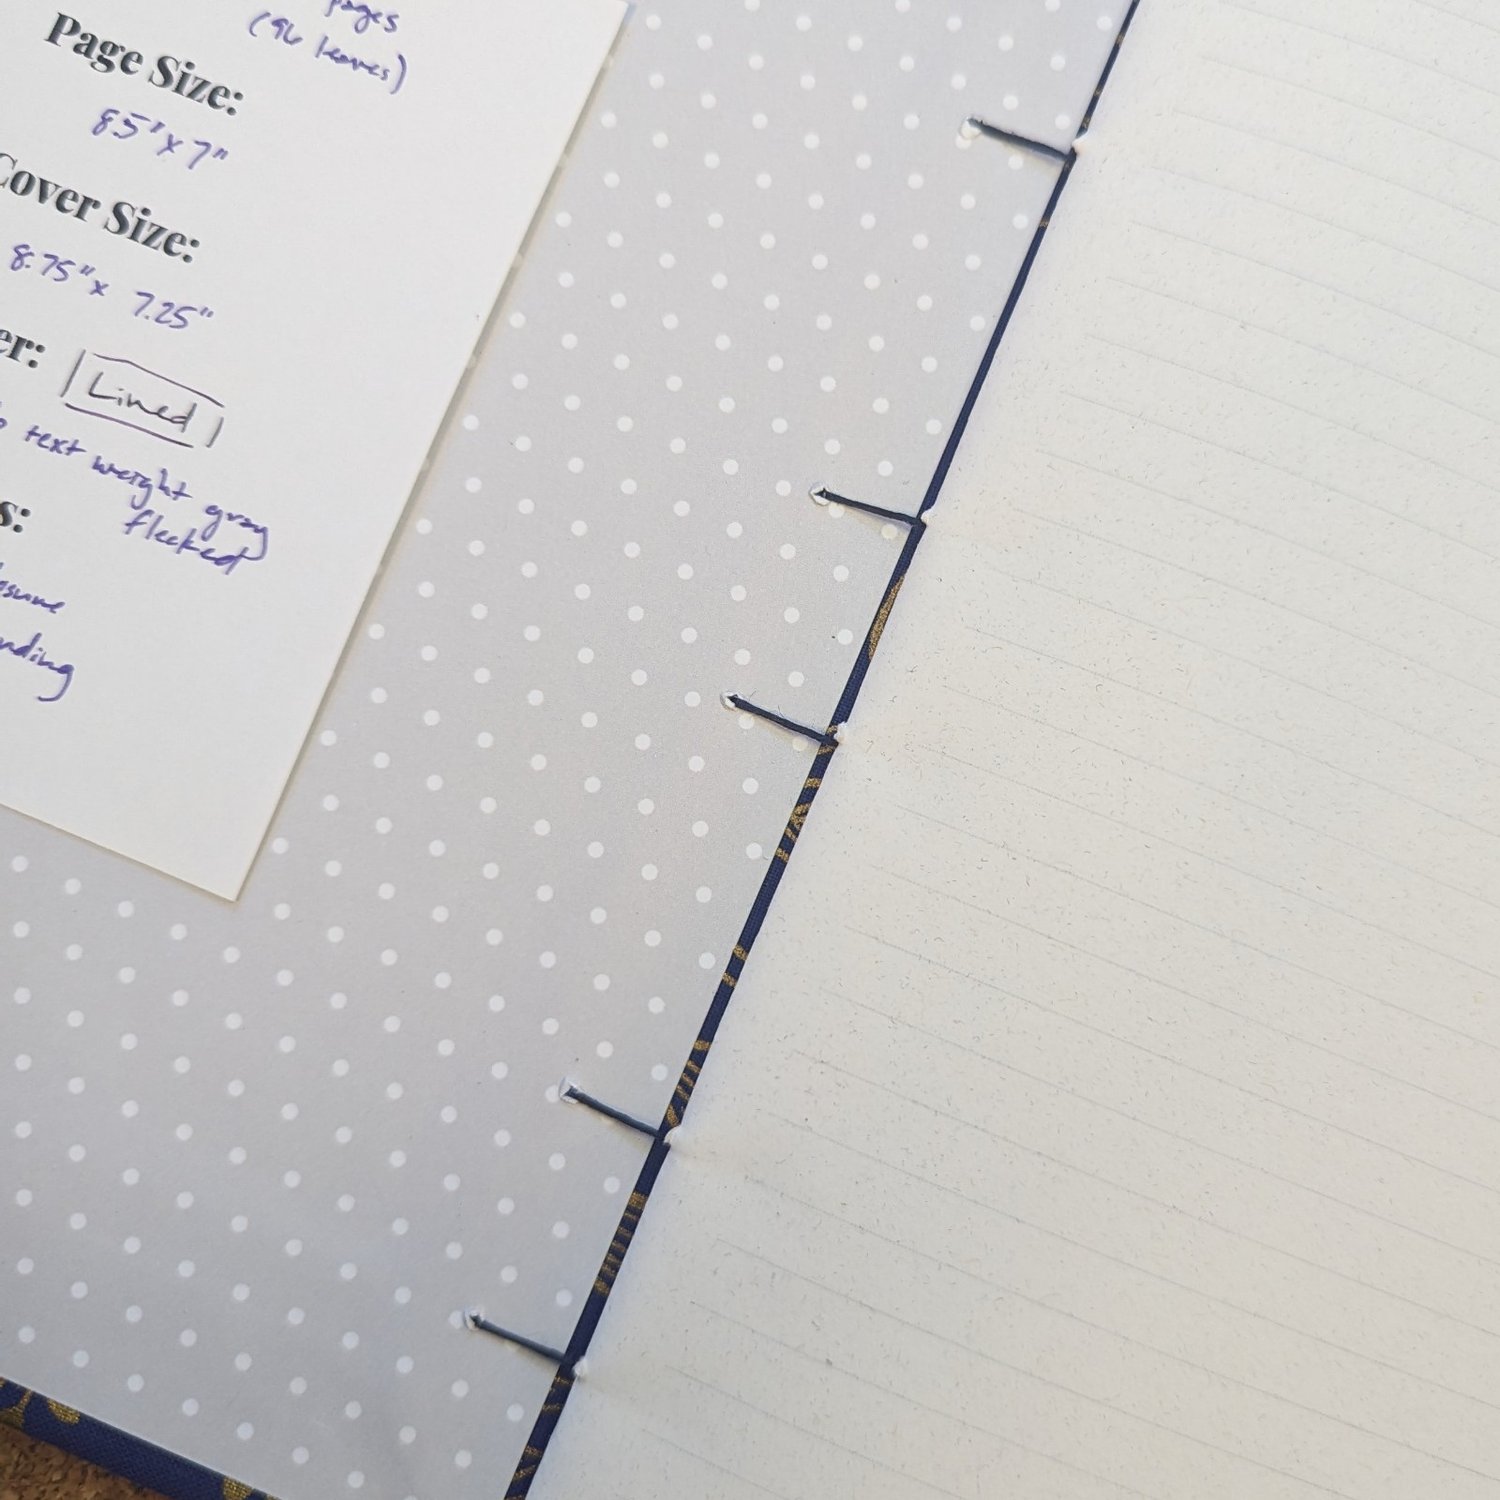 pages
(96 leaves)
Page Size:
8.5"x7"
Cover Size:
8.75"x 7.25"
er: Lined
text weight gray
flecked
s:
osure
nding